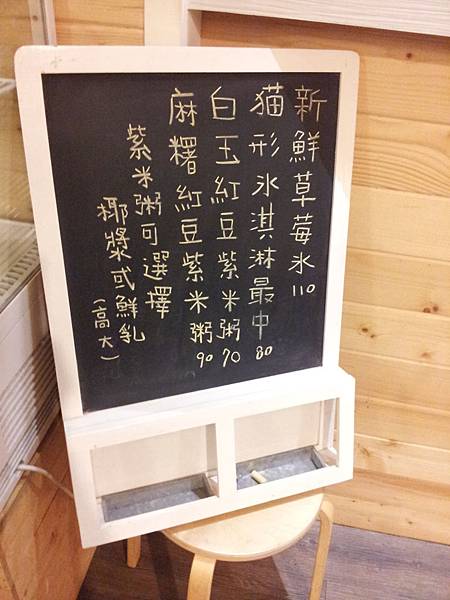 新鮮草莓冰 110
猫形冰淇淋最中 80
白玉紅豆紫米粥 70
麻糬紅豆紫米粥 90
紫米粥可選擇
椰漿或鮮乳
(高大)